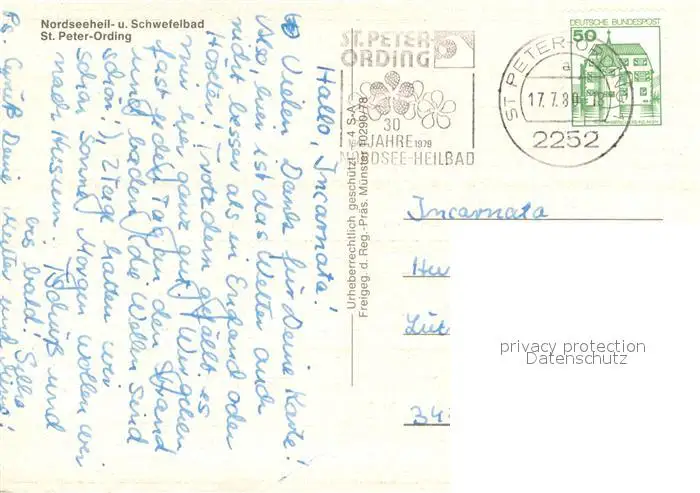 Nordseeheil- u. Schwefelbad
St. Peter-Ording
ST. PETER-
ORDING
30
JAHRE 1979
NORDSEE-HEILBAD
ST PETER-ORDING
a
17.7.80-18
2252
DEUTSCHE BUNDESPOST
50
Hallo, Incarnata!
Vielen Dank für Deine Karte!
Also, hier ist das Wetter auch
nicht besser als in England oder
Höxter! Trotzdem gefällt es
mir hier ganz gut. Wir gehen
fast jeden Tag an den Strand
und baden (die Wellen sind
schön!). 2 Tage hatten wir
schon Sonne! Morgen wollen wir
nach Husum. Tschüß und
bis bald! Silke
P.S. Grüß Deine Mutter und
Urheberrechtlich geschützt.
Freigeg. d. Reg.-Präs. Münster 10290/78
Incarnata
Hu
Lüt
34
privacy protection
Datenschutz